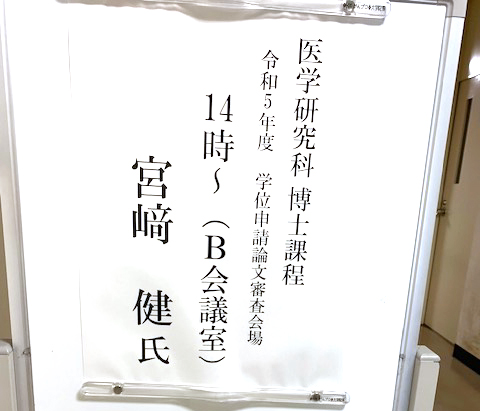 医学研究科 博士課程
令和5年度 学位申請論文審査会場
14時～（B会議室）
宮﨑 健氏